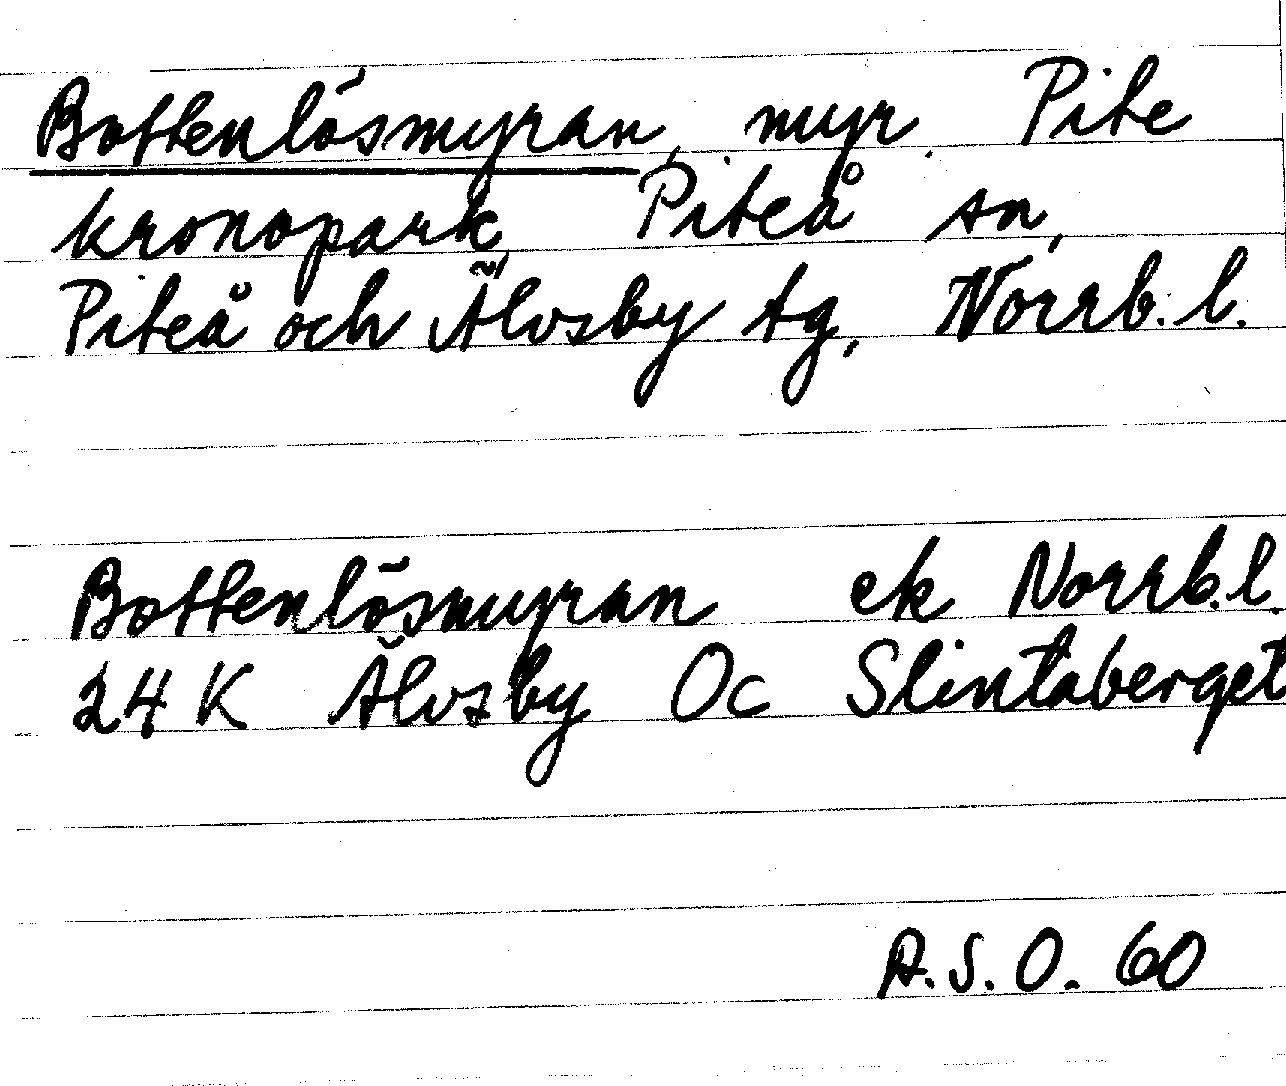 Bottenlösmyran, myr. Pite
kronopark, Piteå sn,
Piteå och Älvsby tg, Norrb. l.
Bottenlösmyran ek Norrb. l.
24 K Älvsby Oc Slintaberget
A.S.O. 60